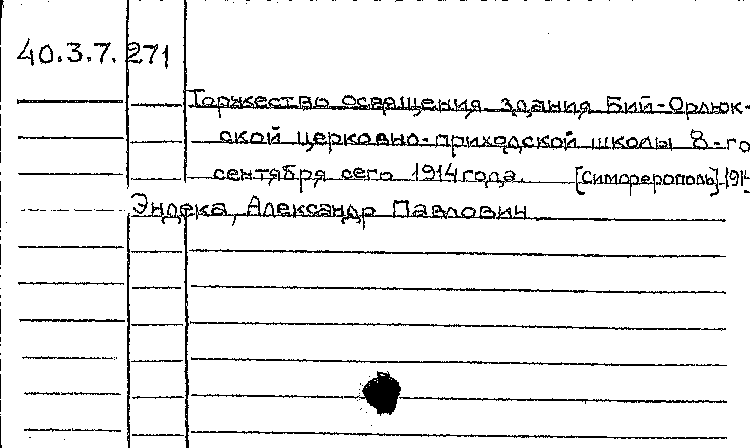 40.3.7.271
Торжество освящения здания Бий-Орлюк-
ской церковно-приходской школы 8-го
сентября сего 1914 года. [Симферополь]. 1914
Эндека, Александр Павлович